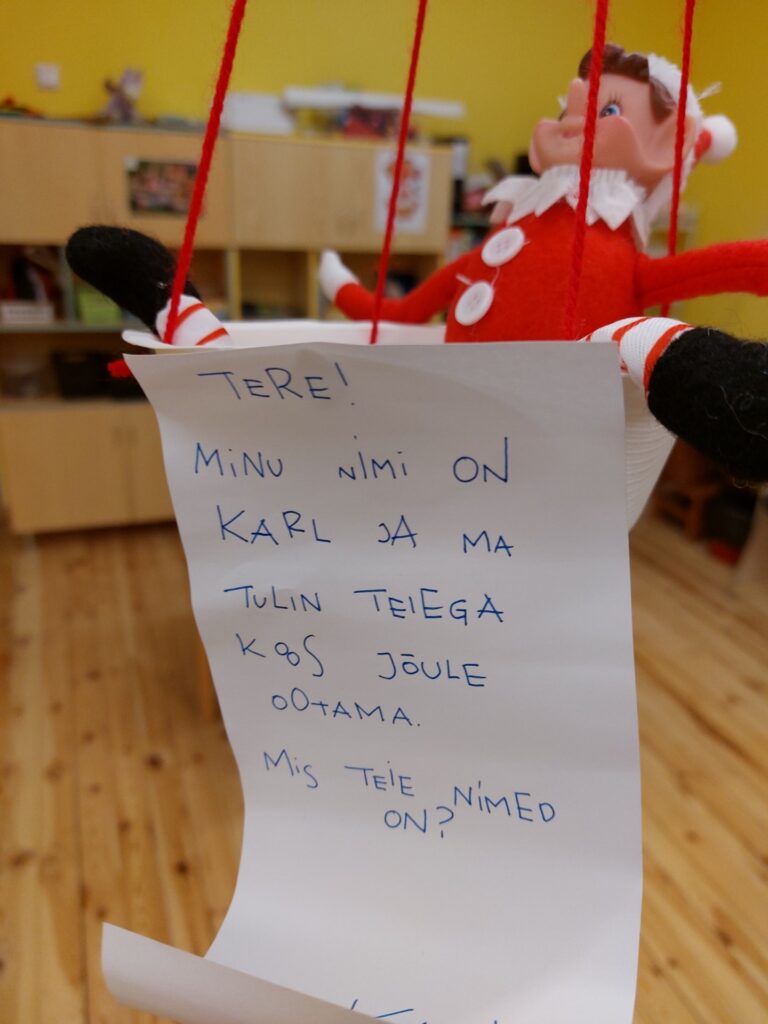 TERE!
MINU NIMI ON
KARL JA MA
TULIN TEIEGA
KOOS JÕULE
OOTAMA.
MIS TEIE NIMED
ON?